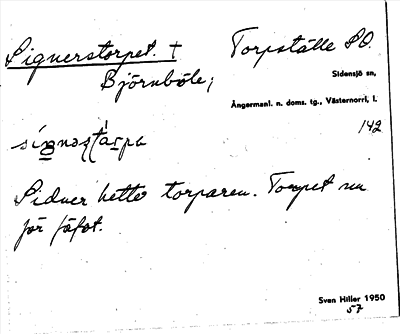 Signerstorpet. † Torpställe SO.
Björnböle;
Sidensjö sn,
Ångermanl. n. doms. tg., Västernorrl, l.
142
Sidner hette torparen. Torpet nu
för
Sven Hiller 1950
57